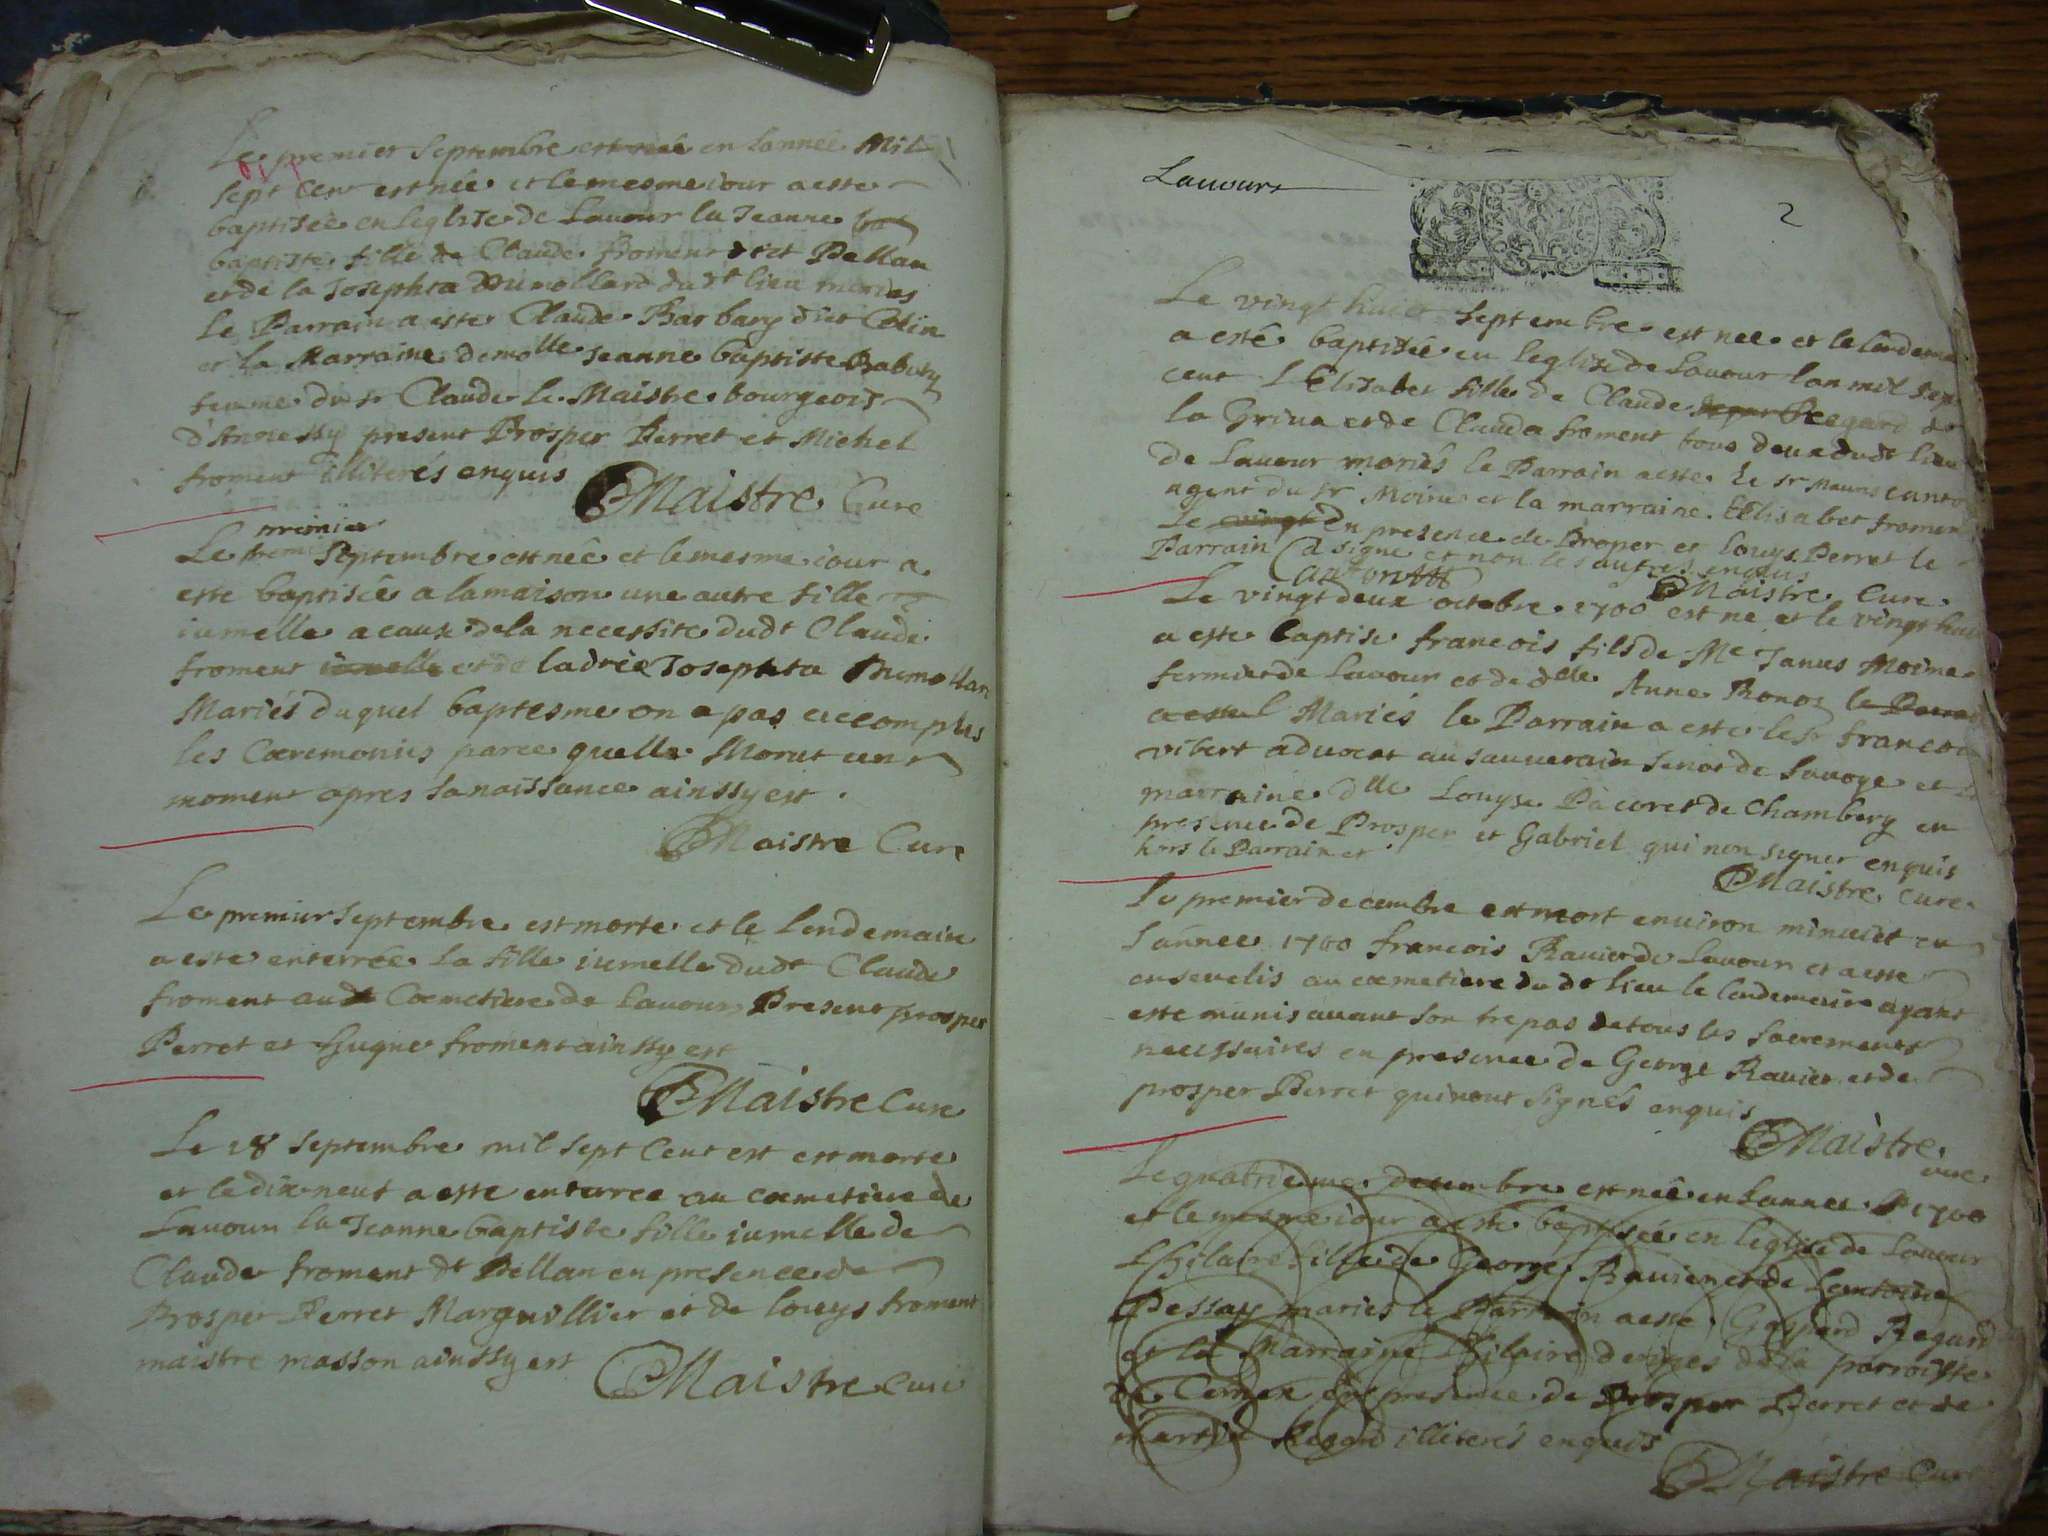 Le premier Septembre est née en lannée Mil
sept Cent est née et le mesme iour a este
baptisée en leglise de Lauour la Jeanne
baptiste fille de Claude froment dict Pellan
et de la Josephta Dumollard dudt lieu mariés
Le Parrain a este Claude Barbary dict Colin
et la Marraine demolle Jeanne baptiste Rabuty
femme du sr Claude le Maistre bourgeois
d'Annessy present Prosper Perret et Michel
froment illiterés enquis
Maistre Cure
premier
Le Septembre est née et le mesme iour a
este baptisée a la maison une autre fille
iumelle a cause de la necessite dudt Claude
froment iumelle et de ladicte Josephta Dumollar
Mariés duquel baptesme on a pas accomplis
les Cœremonies parce quelle Morut un
moment apres sa naissance ainssy est .
Maistre Cure
Le premier Septembre est morte et le lendemain
a este enterrée la fille iumelle dudt Claude
froment au Cœmetiere de Lauour Present prosper
Perret et hugue froment ainssy est
Maistre Cure
Le 18 Septembre mil sept Cent est est morte
et le dix neuf a este enterree au cœmetiere de
Lauour la Jeanne baptiste fille iumelle de
Claude froment dt Pellan en presence de
Prosper Perret Marguillier et de louys froment
maistre masson ainssy est
Maistre Cure
Lauours
2
Le vingt huict Septembre est nee et le lendema
a esté baptisée en leglise de Lauour lan mil sep
cent l'Elisabet fille de Claude Regard de
la Griua et de Clauda froment tous deux dudt lieu
de Lauour mariés le Parrain a este le sr Mauris canto
agent du sr Moine et la marraine Elisabet fromen
Le vingt En presence de Proper et louys Perret le
Parrain a signe et non les autres enquis
Maistre Cure
Le vingt deux octobre 1700 est ne et le vingt hui
a este baptise francois fils de Me Janus Moine
fermier de Lauour et de dlle Anne Bonos le Parra
a este Mariés le Parrain a este le sr francoi
vibert aduocat au sauuerain senat de Sauoye et la
marraine dlle Louyse Pacoret de Chambery en
presence de Prosper et Gabriel qui non signer enquis
hors le Parrain et
Maistre Cure
Le premier decembre est mort enuiron minuict en
l'année 1700 francois Rauier de Lauour et a este
enseuelis au cœmetiere du dt lieu le lendemain ayant
este munis auant son trepas de tous les sacrements
necessaires en presence de George Rauier et de
prosper Perret qui nont signés enquis
Maistre
cure
Le quatrieme decembre est née en lannee 1700
et le mesme iour a este baptisée en leglise de Lauour
L'hilaire fille de George Rauier et de Lantoine
Dessay mariés le Parrain a este Gaspard Regard
et la Marraine hilaire de la parroisse
de en presence de Prosper Perret et de
martin Regard illiterés enquis
Maistre Cure